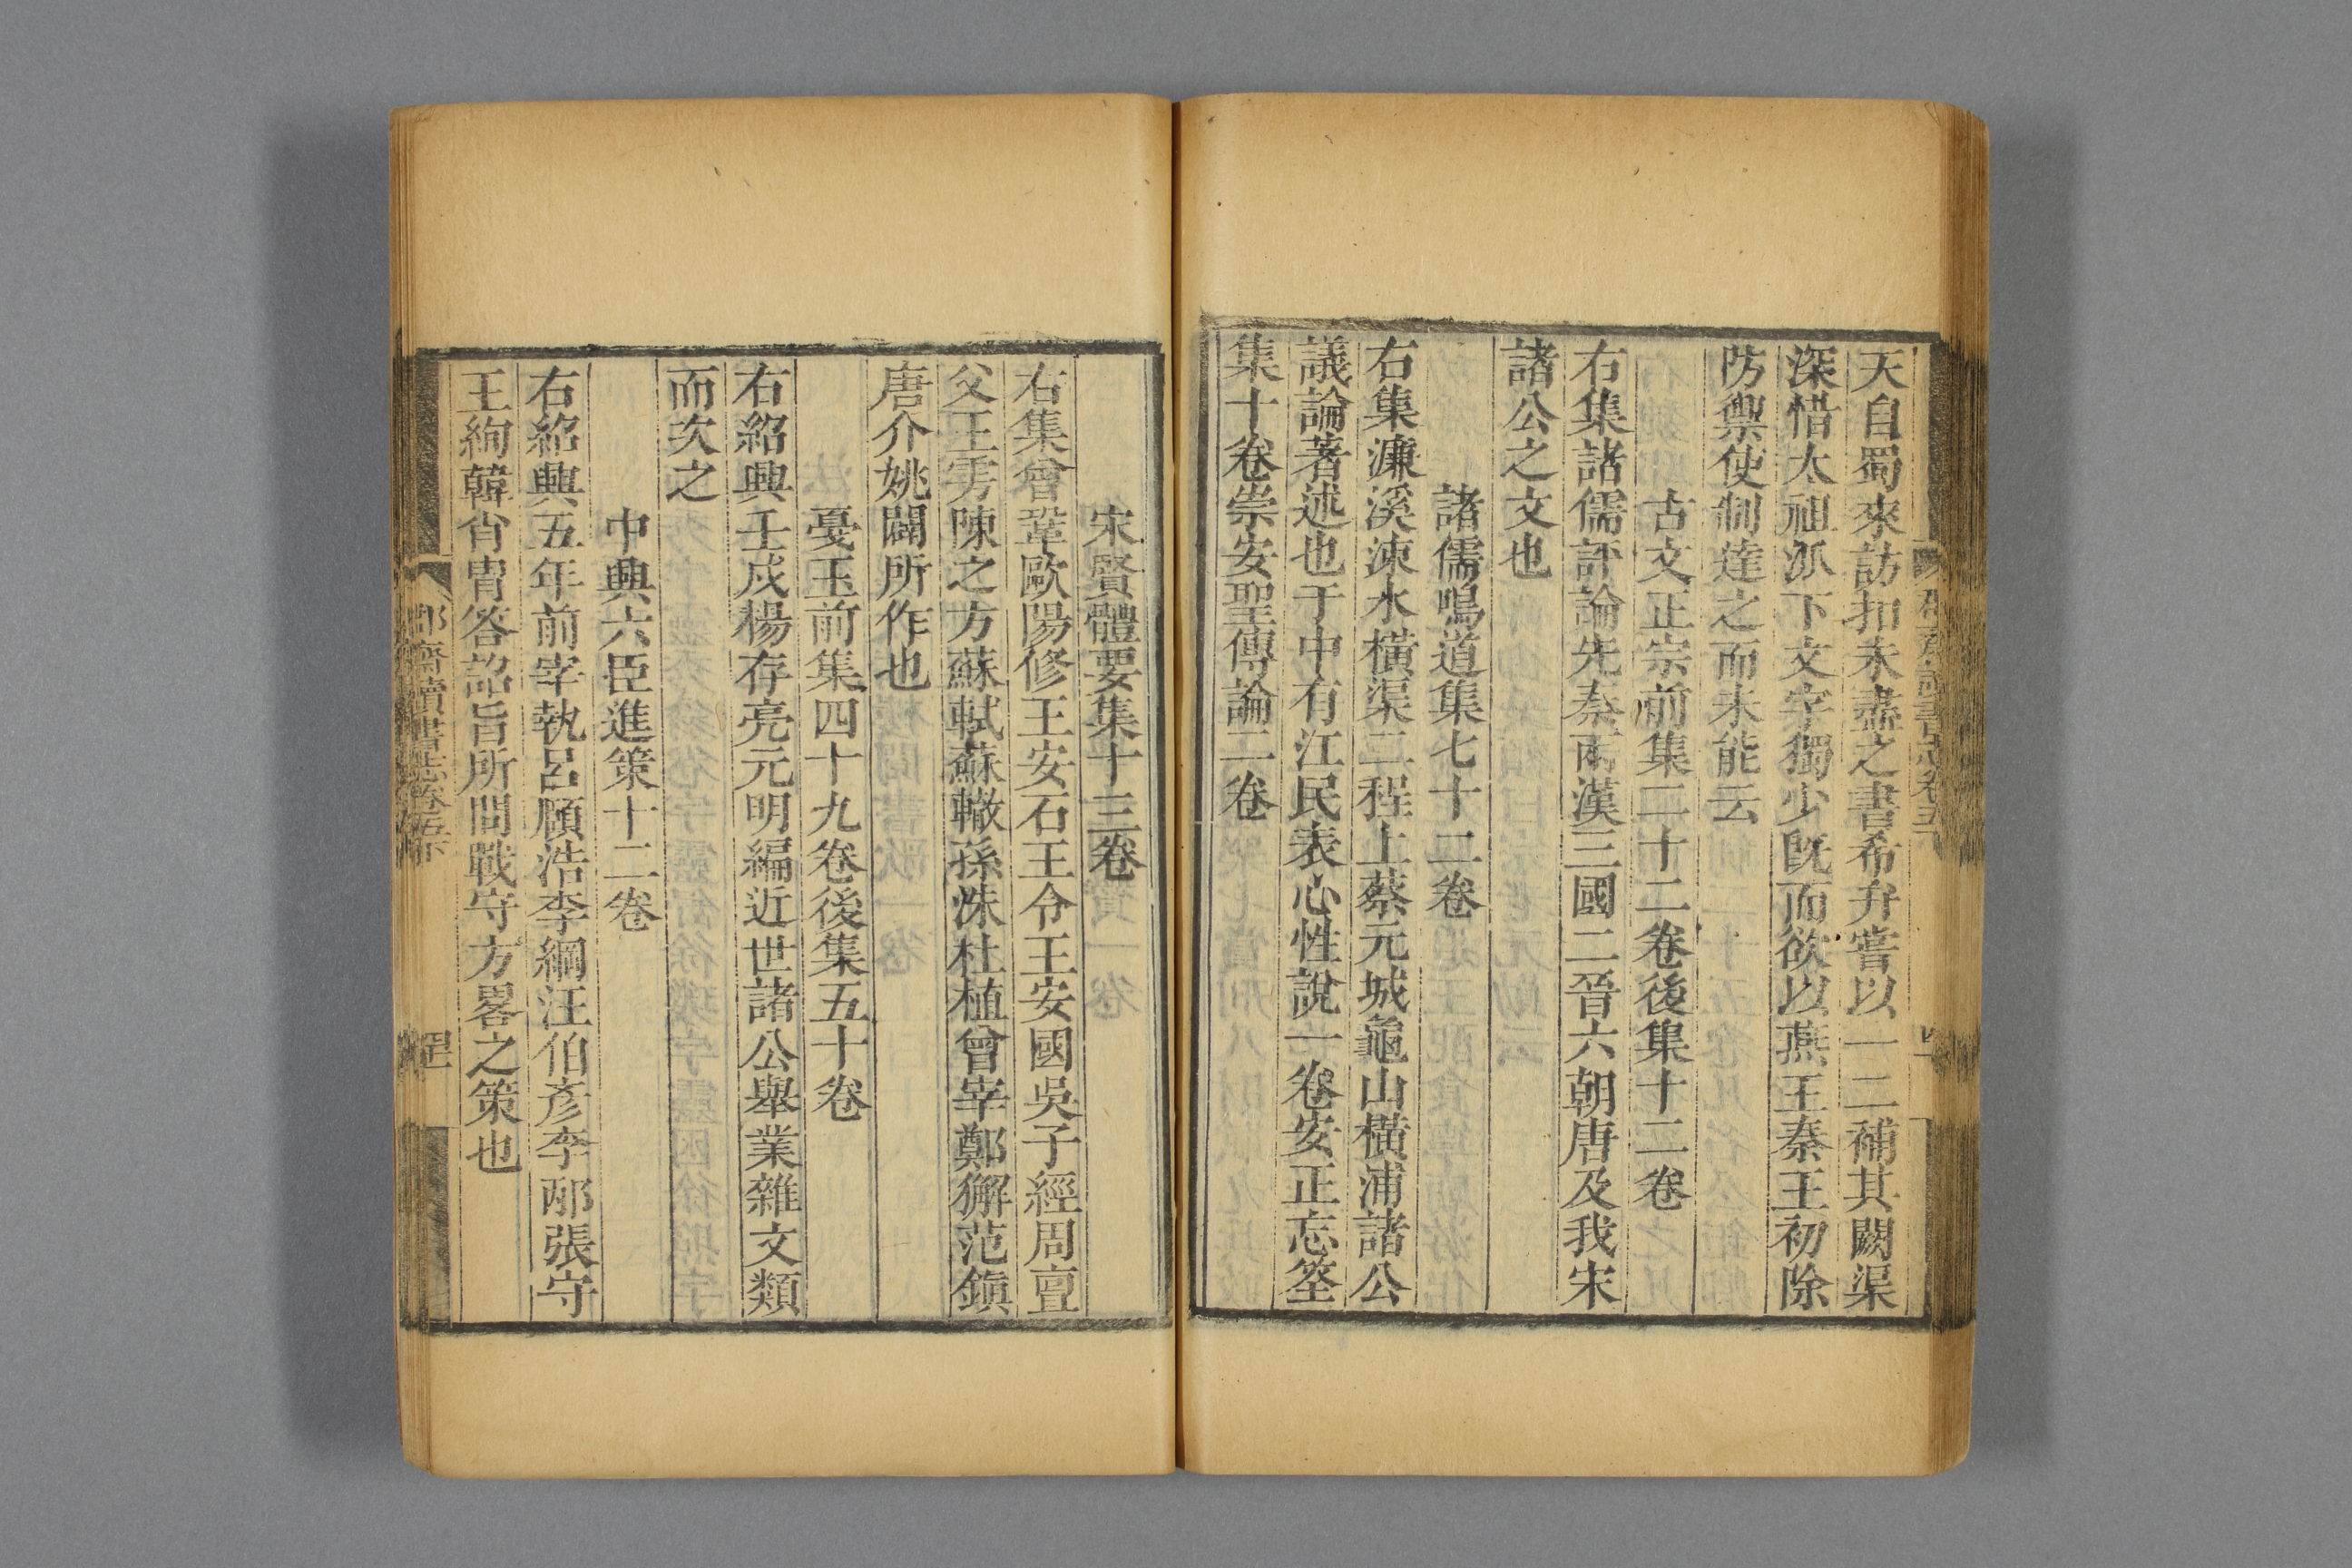 天自蜀來訪扣未盡之書希弁嘗以一二補其闕渠
深惜太祖派下文字獨少旣而欲以燕王秦王初除
防禦使制達之而未能云
古文正宗前集二十二卷後集十二卷
右集諸儒評論先秦兩漢三國二晉六朝唐及我宋
諸公之文也
諸儒鳴道集七十二卷
右集濂溪涑水橫渠二程上蔡元城龜山橫浦諸公
議論著述也于中有江民表心性說一卷安正忘筌
集十卷崇安聖傳論二卷
宋賢體要集十三卷
右集曾鞏歐陽修王安石王令王安國吳子經周亶
父王雱陳之方蘇軾蘇轍孫洙杜植曾宰鄭獬范鎭
唐介姚闢所作也
憂玉前集四十九卷後集五十卷
右紹興壬戌楊存亮元明編近世諸公舉業雜文類
而次之
中興六臣進策十二卷
右紹興五年前宰執呂頤浩李綱汪伯彥李邴張守
王綯韓肖胄答詔旨所問戰守方畧之策也
郡齋讀書志卷五下